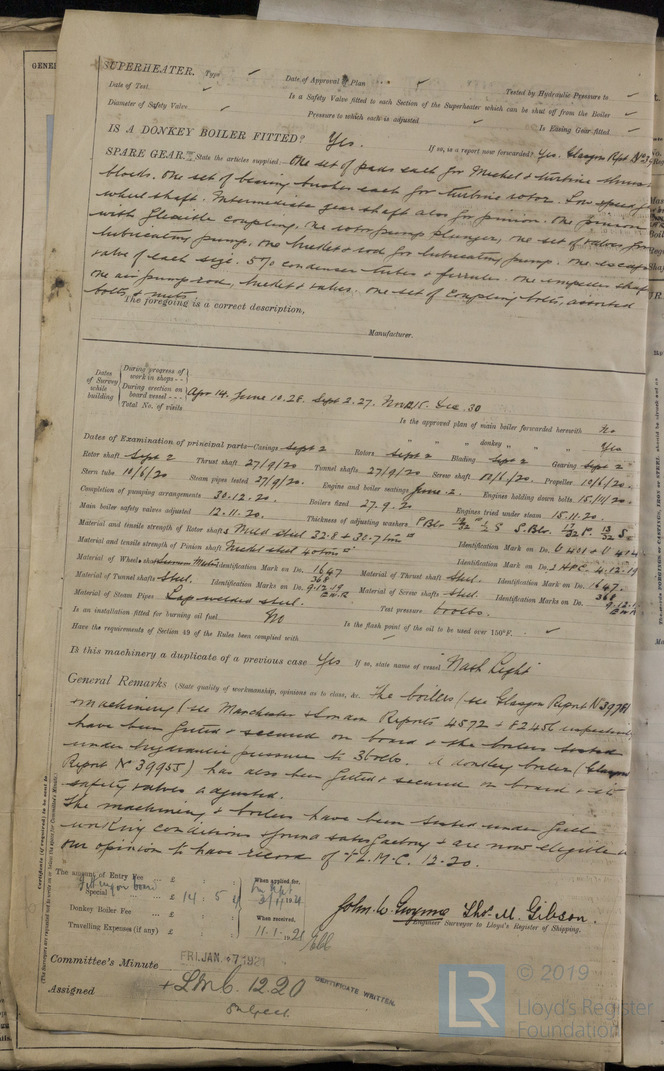 GENE
SUPERHEATER. Type ✓ Date of Approval of Plan ✓ Tested by Hydraulic Pressure to ✓
Date of Test ✓ Is a Safety Valve fitted to each Section of the Superheater which can be shut off from the Boiler ✓
Diameter of Safety Valve ✓ Pressure to which each is adjusted ✓ Is Easing Gear fitted ✓
IS A DONKEY BOILER FITTED? Yes. If so, is a report now forwarded? Yes. Glasgow Rpt
SPARE GEAR. State the articles supplied:— One set of pads each for Michel & turbine thrust
blocks. One set of bearing bushes each for turbine rotor. Low speed
wheel shaft. Intermediate gear shaft also for pinion. One pinion
with flexible coupling, One rotor pump plunger, one set of valves from
lubricating pump, one bucket & rod for lubricating pump. One escape
valve of each size. 5% condenser tubes & ferrules. One impeller shaft
one air pump rod, bucket & valves. One set of coupling bolts, assorted
bolts & nuts.
The foregoing is a correct description,
Manufacturer.
Dates of Survey while building
During progress of work in shops - -
During erection on board vessel - - -
Total No. of visits
Apr 14. June 10.28. Sept 2.27. Nov 12.15. Dec. 30
Is the approved plan of main boiler forwarded herewith No
" " " donkey " " " Yes
Dates of Examination of principal parts—Casings Sept 2 Rotors Sept 2 Blading Sept 2 Gearing Sept 2
Rotor shaft Sept 2 Thrust shaft 27/9/20 Tunnel shafts 27/9/20 Screw shaft 10/6/20. Propeller 10/6/20.
Stern tube 10/6/20 Steam pipes tested 27/9/20 Engine and boiler seatings June 2. Engines holding down bolts 15/11/20.
Completion of pumping arrangements 30.12.20. Boilers fixed 27.9.20 Engines tried under steam 15.11.20.
Main boiler safety valves adjusted 12.11.20. Thickness of adjusting washers
Material and tensile strength of Rotor shafts Mild steel 32.8 & 30.7 tons Identification Mark on Do.
Material and tensile strength of Pinion shaft Nickel steel 40 tons Identification Mark on Do. 4.12.19
Material of Wheel shaft Identification Mark on Do. 1647 Material of Thrust shaft Steel. Identification Mark on Do. 1647.
Material of Tunnel shafts Steel. Identification Marks on Do. 368 9.12.19 Material of Screw shaft Steel. Identification Marks on Do. 368
Material of Steam Pipes Lap welded steel. Test pressure 600 lbs.
Is an installation fitted for burning oil fuel No Is the flash point of the oil to be used over 150°F. ✓
Have the requirements of Section 49 of the Rules been complied with
Is this machinery a duplicate of a previous case Yes If so, state name of vessel "Nash Light"
General Remarks (State quality of workmanship, opinions as to class, &c. The boilers (see Glasgow Report No 39781
machinery (see Manchester & London Reports 4572 & 82456 respectively
have been fitted & secured on board & the boilers tested
under hydraulic pressure to 360 lbs. A donkey boiler (Glasgow
Report No 39955) has also been fitted & secured on board & its
safety valves adjusted.
The machinery & boilers have been tested under full
working conditions & found satisfactory & are now eligible in
our opinion to have record of + L.M.C. 12-20.
Certificate (if required) to be sent to
(The Surveyors are requested not to write on or below the space for Committee's Minute.)
The amount of Entry Fee £ : : When applied for,
Fitting on board
Special £ 14 : 5 : 3/1/1921
Donkey Boiler Fee £ : : When received,
Travelling Expenses (if any) £ : : 11.1.1921
Thos. M. Gibson.
Engineer Surveyor to Lloyd's Register of Shipping.
Committee's Minute FRI. JAN. 7 1921
Assigned + L.M.C. 12 20
Subject.
CERTIFICATE WRITTEN.
LR
© 2019
Lloyd's Register
Foundation